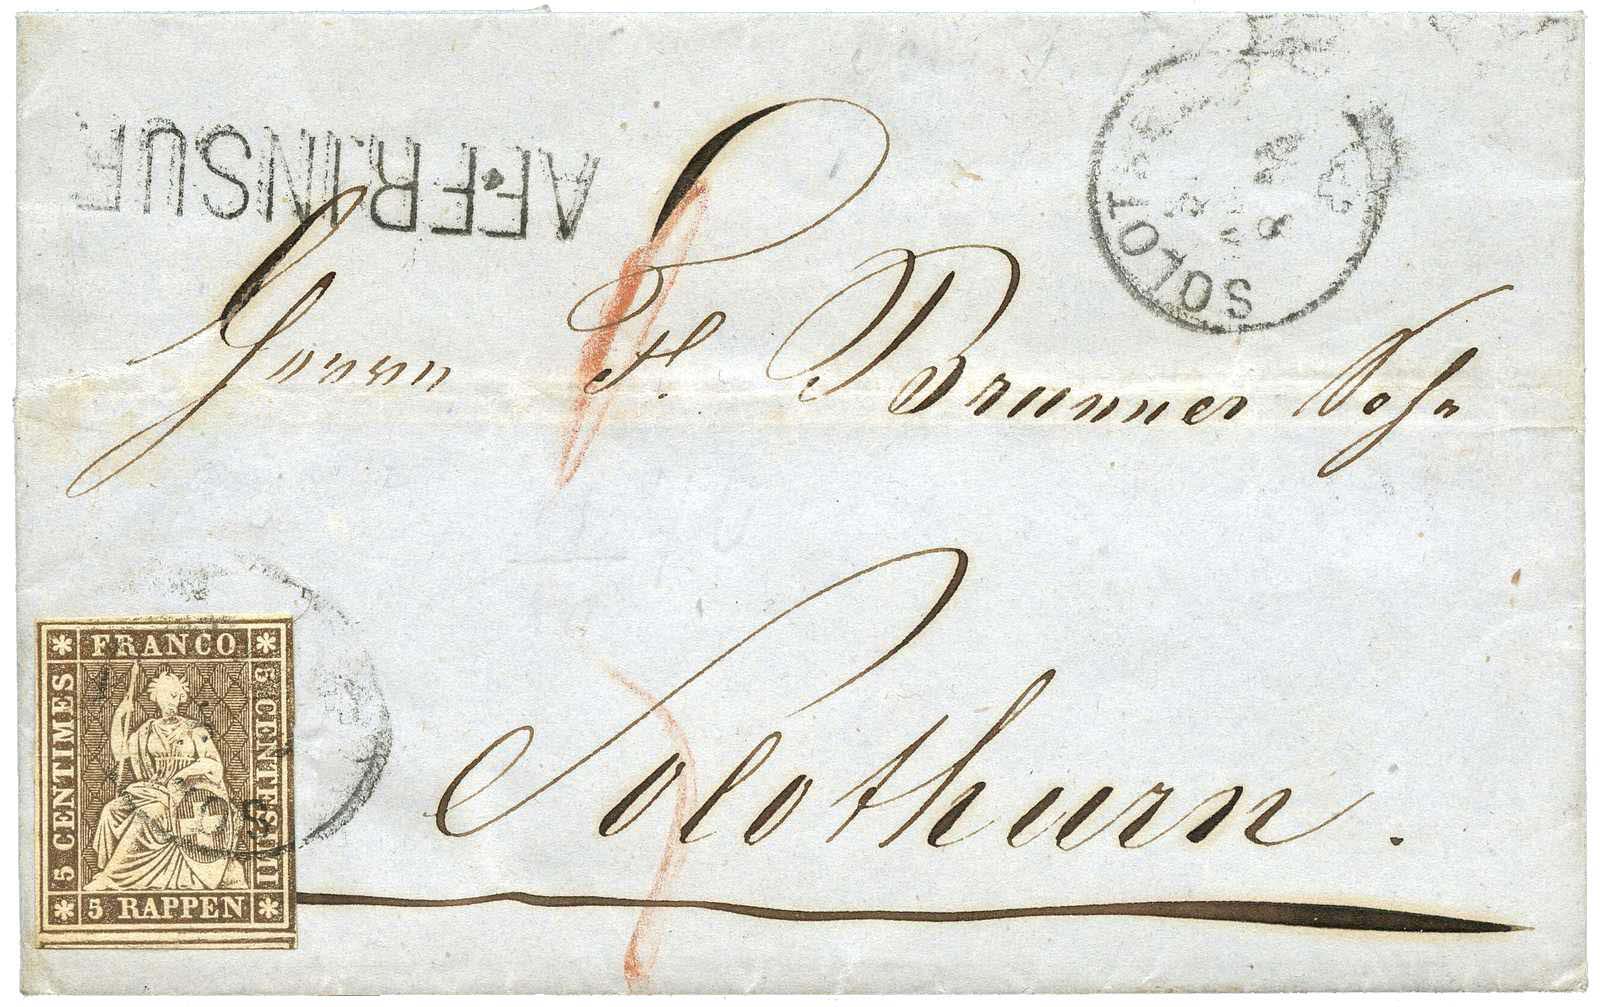 AFFR.INSUF
SOLOTHURN
Herrn A. Brunner Sohn
Solothurn.
FRANCO
5 CENTIMES
5 CENTESIMI
5 RAPPEN
SOLO